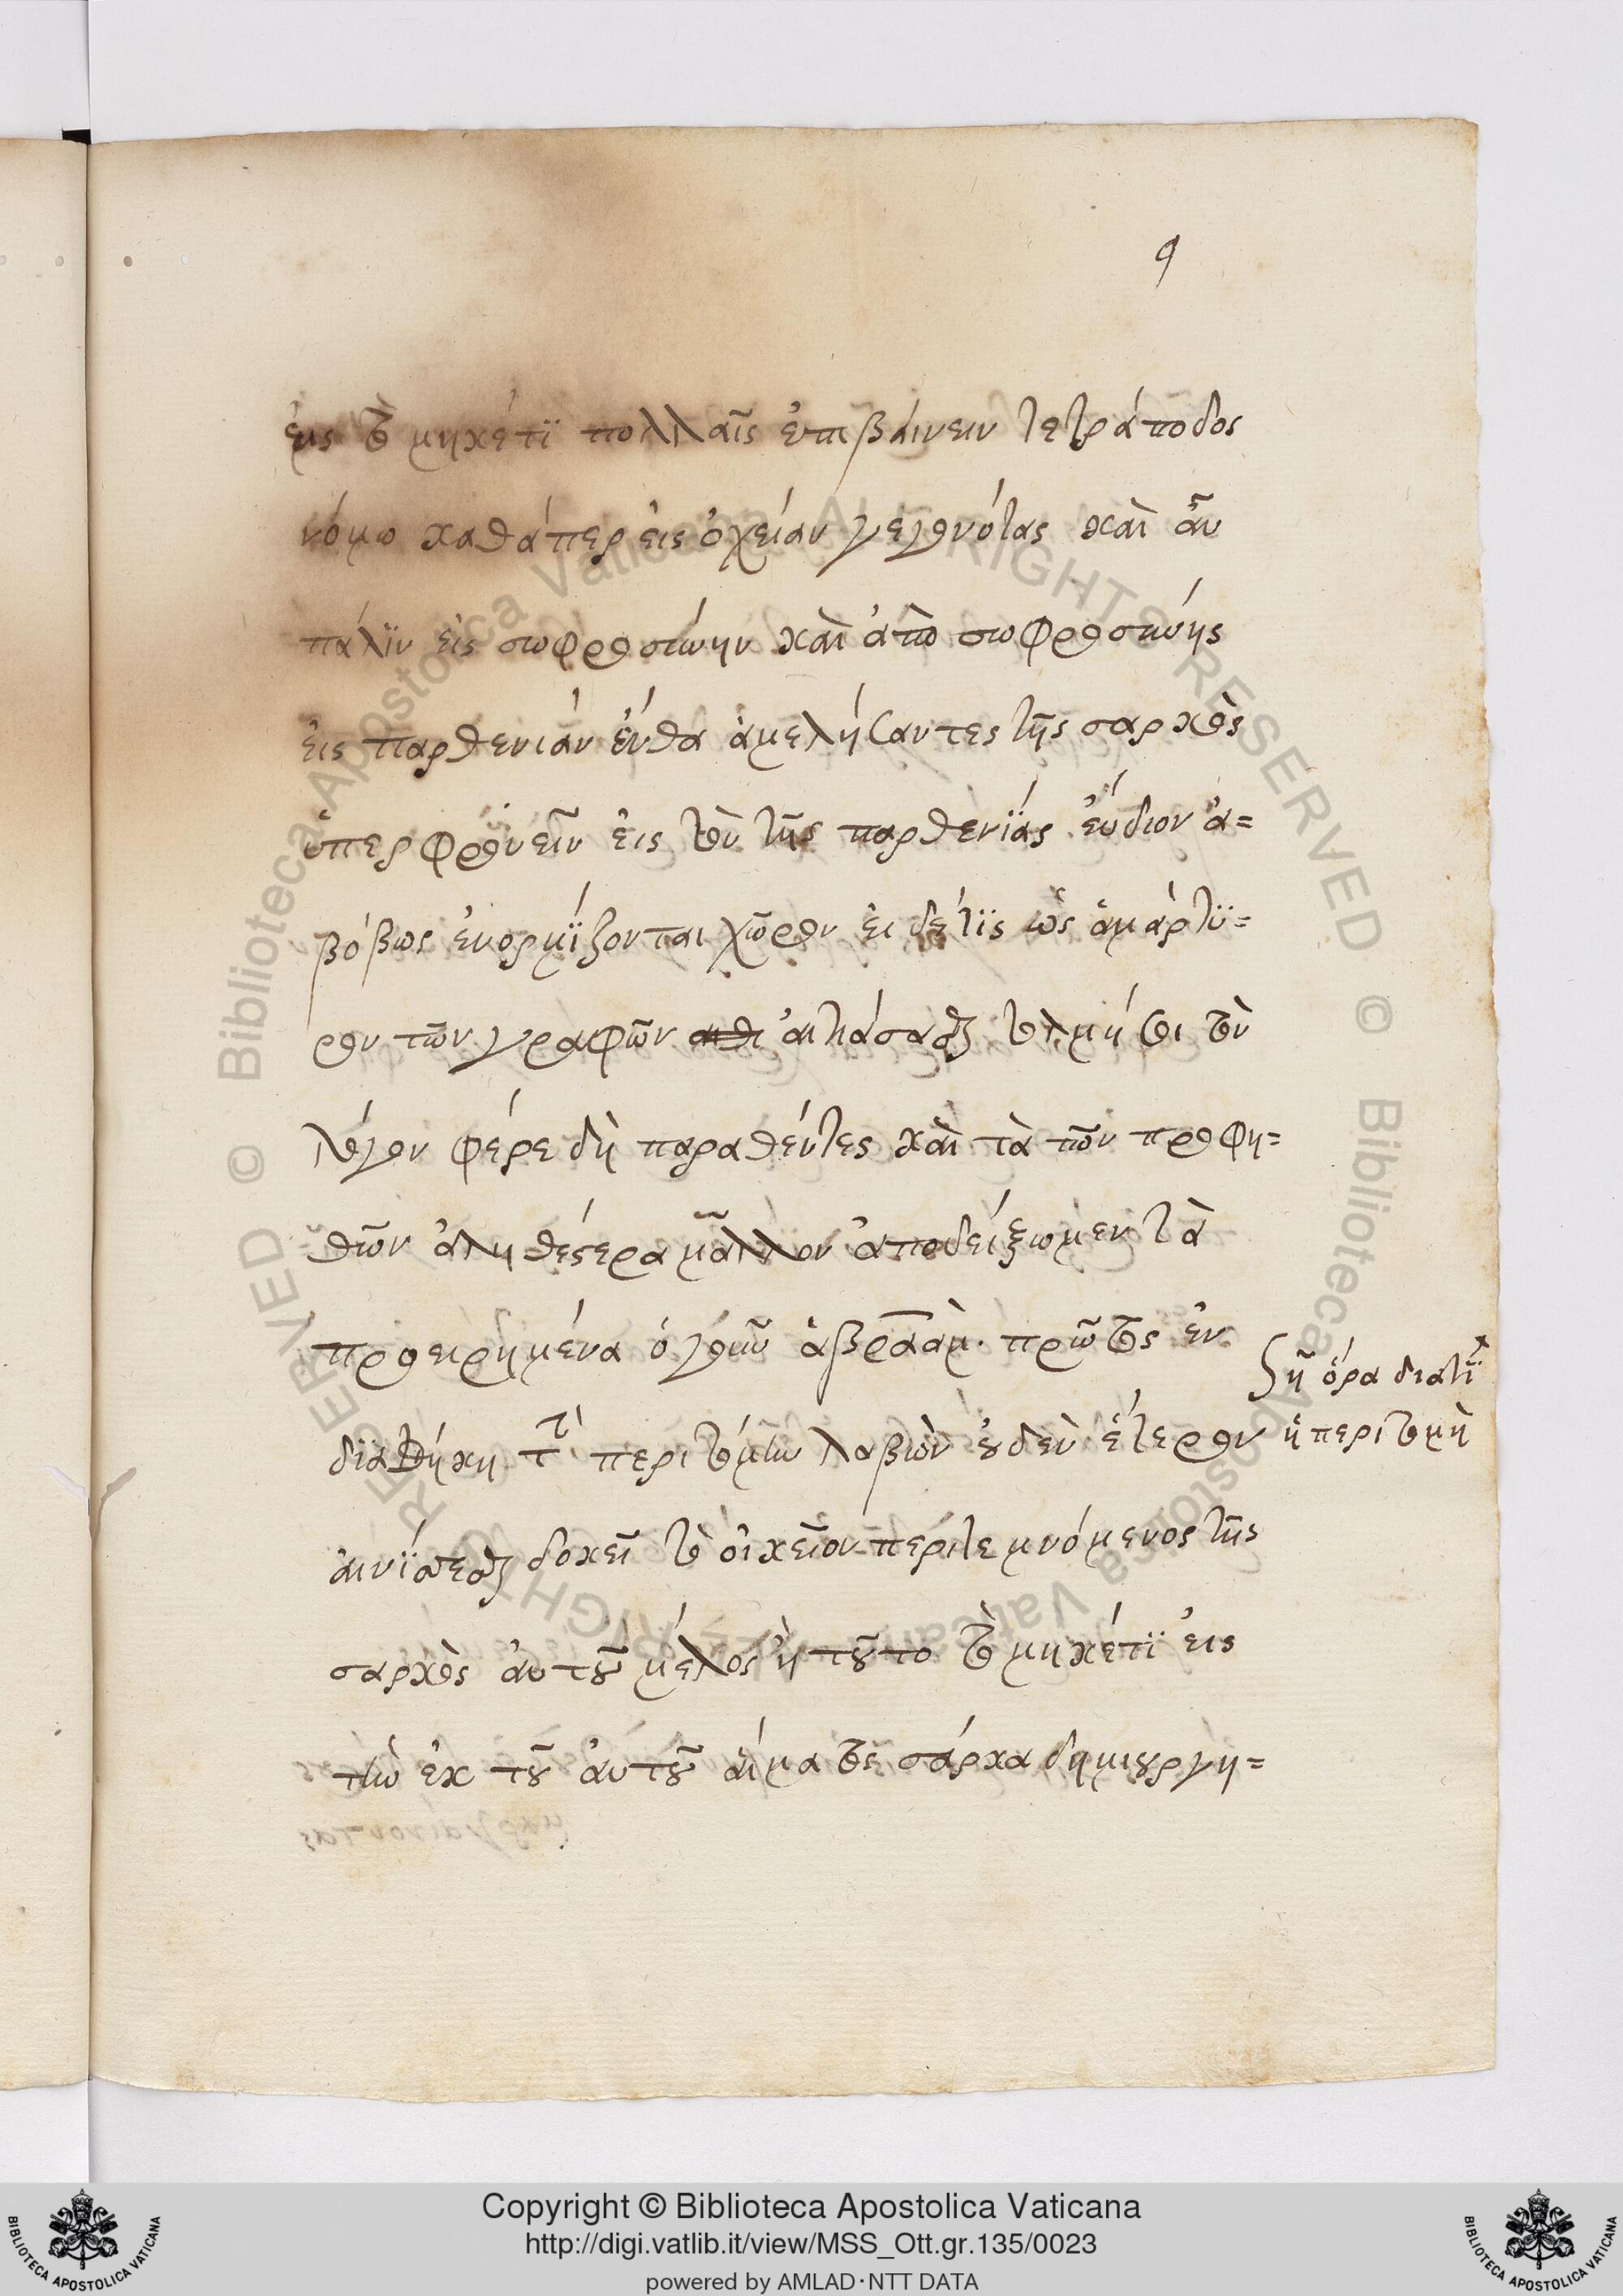 9
εἰς τὸ μηκέτϊ πολλαῖς ἐπιβαίνειν τετράποδος
νόμω καθάπερ εἰς ὀχείαν γεγονότας καὶ ἂυ
πάλϊν εἰς σωφροσύνην καὶ ἀπὸ σωφροσύνης
ἐις παρθενιάν ἔνθα ἀμελήσαντες τῆς σαρκὸς
ὑπερφρονεῖν ἐις τὸν τῆς παρθενϊάς ἐύδιον ἀ=
βόβως ἐνορμϊζονται χῶρον ἐι δέ τϊς ὡς ἀμάρτϋ=
ρον τῶν γραφῶν ἀιτιάσασθαι τολμήσοι τὸν
λόγον φέρε δὴ παραθέντες καὶ τὰ τῶν προφη=
τῶν ἀληθέστερα μᾶλλον ἀποδείξωμεν τὰ
προειρημένα ὁ γοῦν ἀβραὰμ. πρῶτος ἐν
δϊαθήκη τ περιτομὴν λαβὼν ὀυδὲν ἕτερον
ἀινϊττεσθαι δοκεῖ τὸ οἰκεῖον περιτεμνόμενος τῆς
σαρκὸς ἀυτοῦ μέλος ἢ τοῦτο τὸ μηκέτϊ ἐις
τὴν ἐκ τοῦ ἀυτοῦ ἅιματος σάρκα δημιουργη=
ση ὅρα διατϊ
ἡ περιτομὴ
Copyright © Biblioteca Apostolica Vaticana
http://digi.vatlib.it/view/MSS_Ott.gr.135/0023
powered by AMLAD·NTT DATA
BIBLIOTECA APOSTOLICA VATICANA
BIBLIOTECA APOSTOLICA VATICANA
© Biblioteca Apostolica Vaticana ALL RIGHTS RESERVED
© Biblioteca Apostolica Vaticana ALL RIGHTS RESERVED